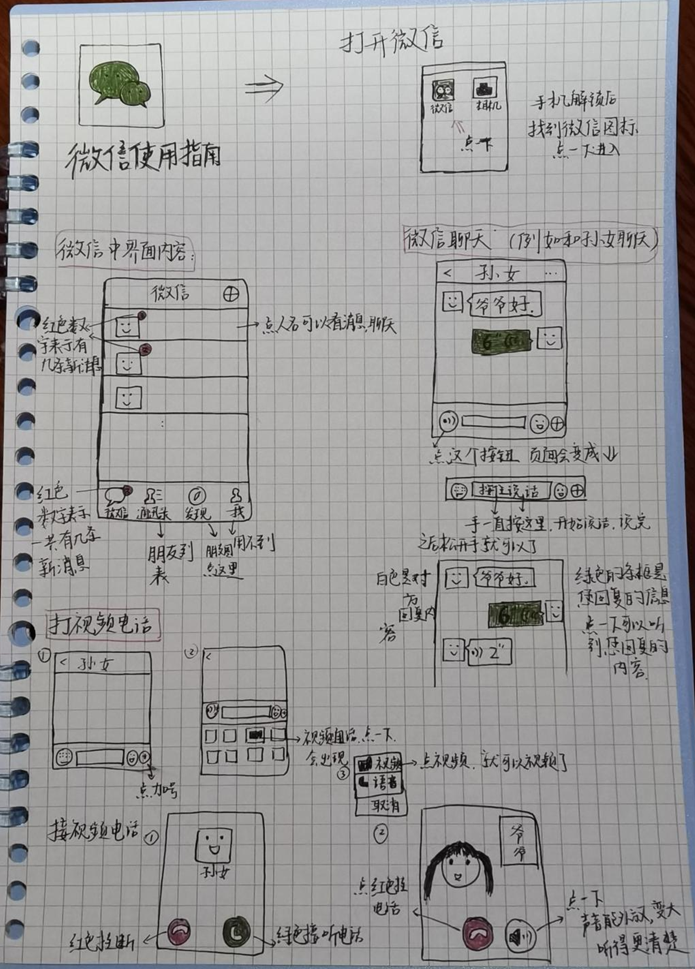 打开微信
微信
相机
点一下
手机解锁后
找到微信图标
点一下进入
微信使用指南
微信中界面内容:
微信
红色数
字表示有
几条新消息
点人名可以看消息,聊天
微信
通讯录
发现
我
红色
数字表示
一共有几条
新消息
朋友列
表
朋友圈
点这里
用不到
微信聊天 (例如和孙女聊天)
< 孙女 ...
爷爷好.
6"
点这个按钮 页面会变成
按住说话
手一直按这里,开始说话,说完
之后松开手就可以了
白色是对
方
回复内
容
爷爷好.
6"
2"
绿色的条框是
您回复的信息
点一下可以听
到,您回复的
内容.
打视频电话
①
< 孙女
点加号
②
<
视频电话,点一下
会出现
③
视频
语音
取消
点视频,就可以视频了
接视频电话
①
孙女
红色挂断
绿色接听电话
②
爷爷
点红色挂
电话
点一下
声音能外放,变大
听得更清楚